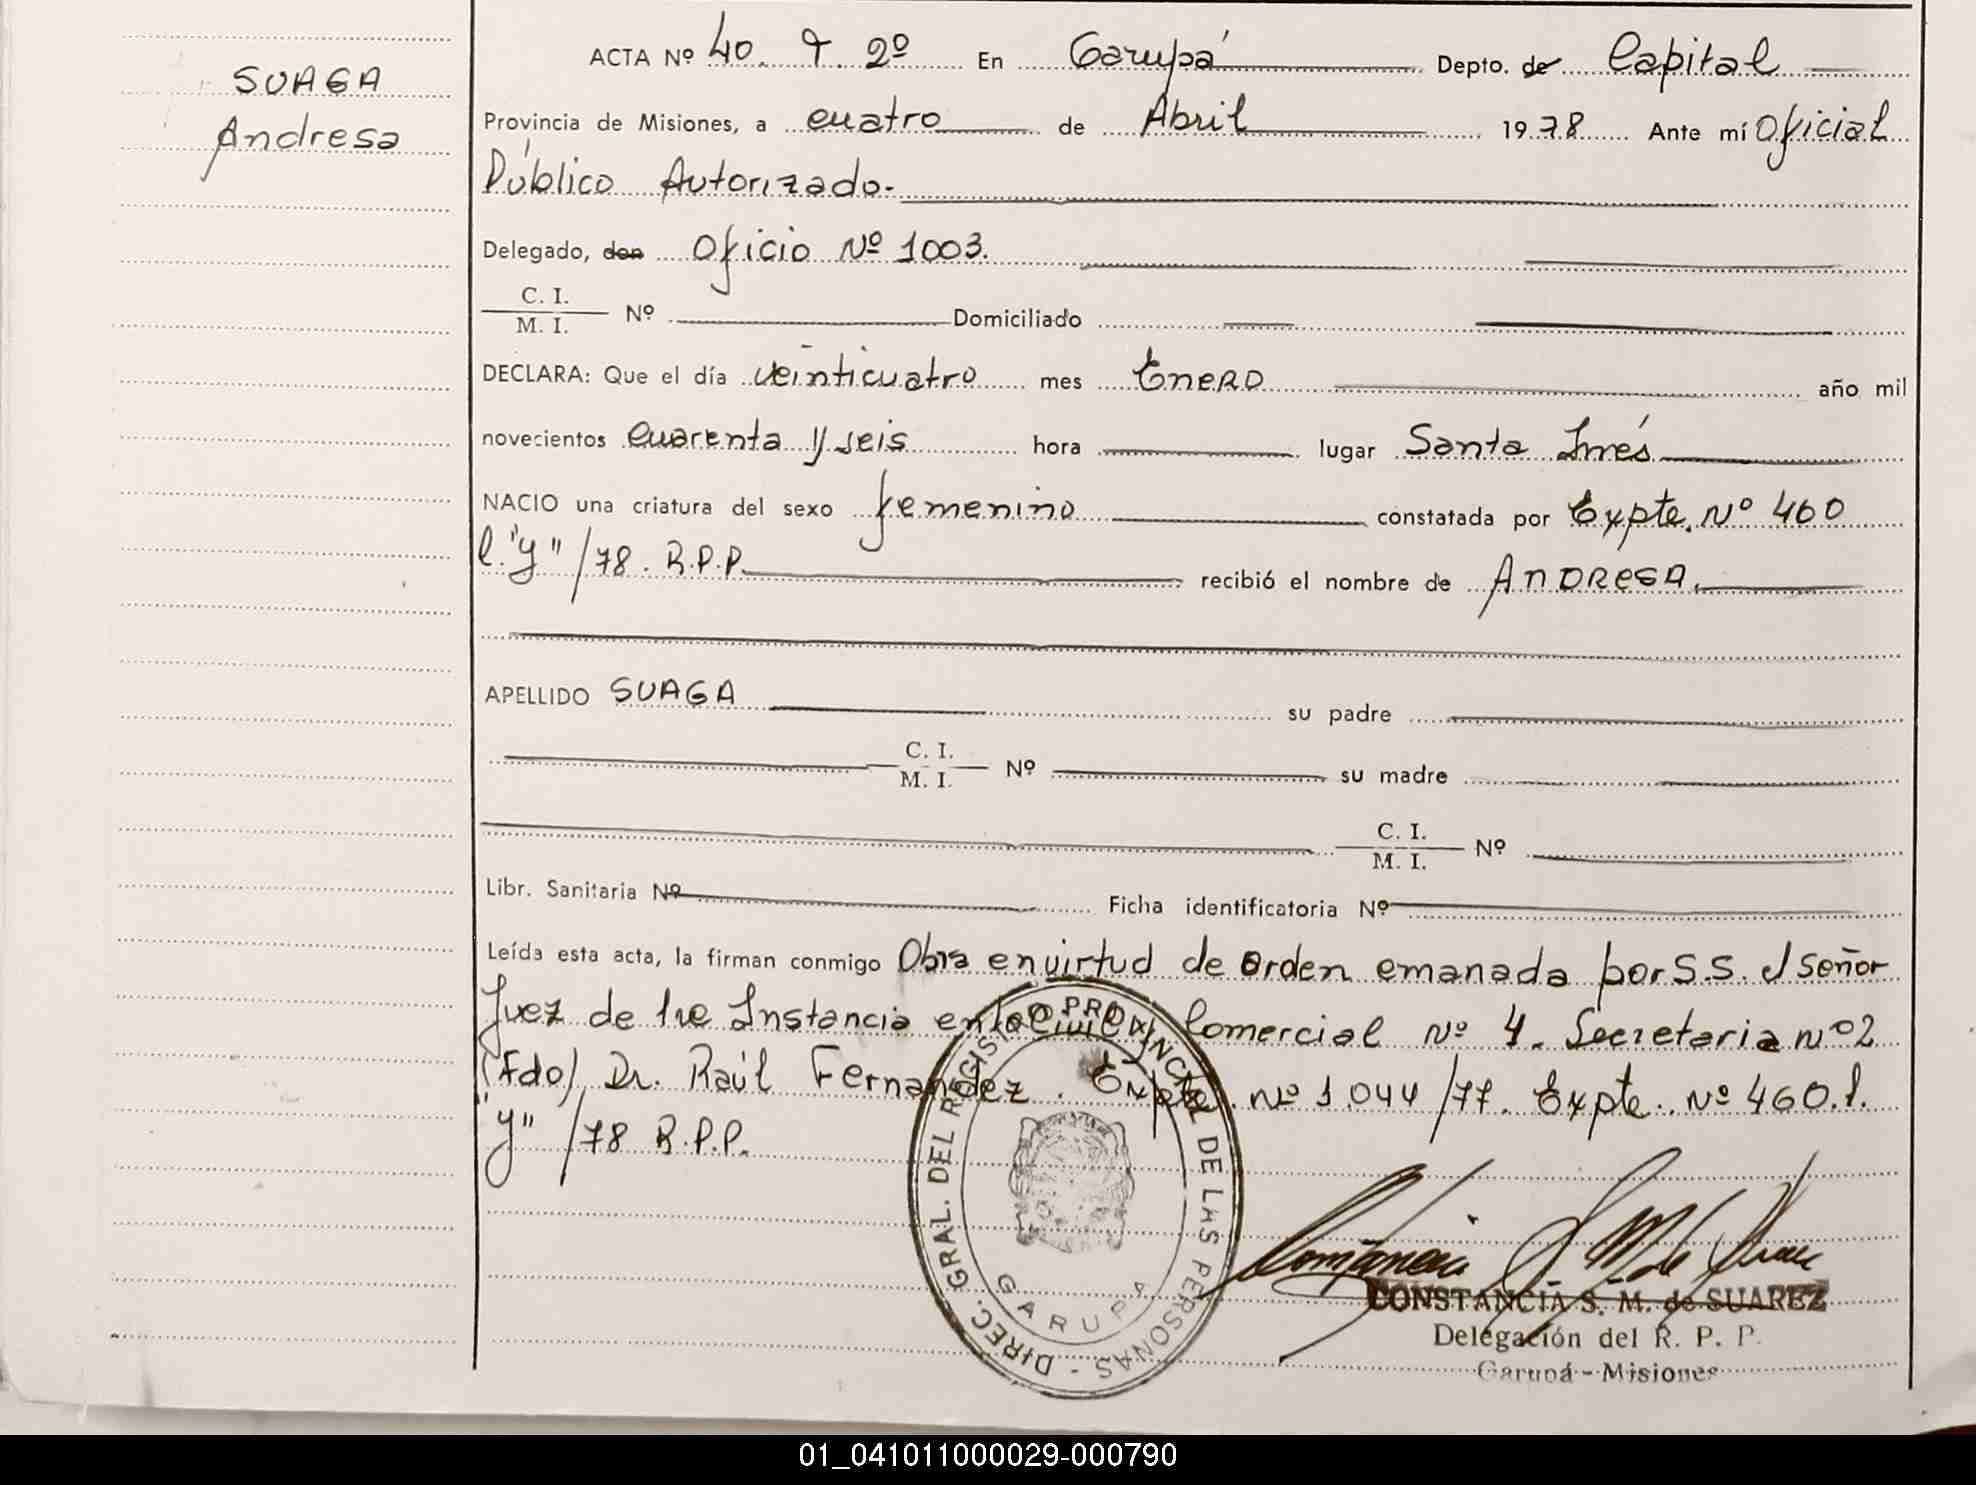 SUAGA
Andresa
ACTA Nº 40. T. 2º En Garupá Depto. de Capital
Provincia de Misiones, a cuatro de Abril 1978 Ante mí Oficial
Público Autorizado.
Delegado, don Oficio Nº 1003.
C. I.
M. I. Nº Domiciliado
DECLARA: Que el día veinticuatro mes Enero año mil
novecientos cuarenta y seis hora lugar Santa Inés
NACIO una criatura del sexo femenino constatada por Expte. Nº 460
l. "y" /78. R.P.P. recibió el nombre de ANDRESA.
APELLIDO SUAGA su padre
C. I.
M. I. Nº su madre
C. I.
M. I. Nº
Libr. Sanitaria Nº Ficha identificatoria Nº
Leída esta acta, la firman conmigo Obra en virtud de orden emanada por S.S. el Señor
Juez de 1re Instancia en lo Civil y Comercial Nº 4. Secretaria nº 2
(Fdo) Dr. Raúl Fernandez. Expte. Nº 1.044/77. Expte. Nº 460. l.
"y" /78 R.P.P.
DIREC. GRAL. DEL REGISTRO PROVINCIAL DE LAS PERSONAS -
GARUPA
CONSTANCIA S. M. de SUAREZ
Delegación del R. P. P.
Garupá - Misiones
01_041011000029-000790